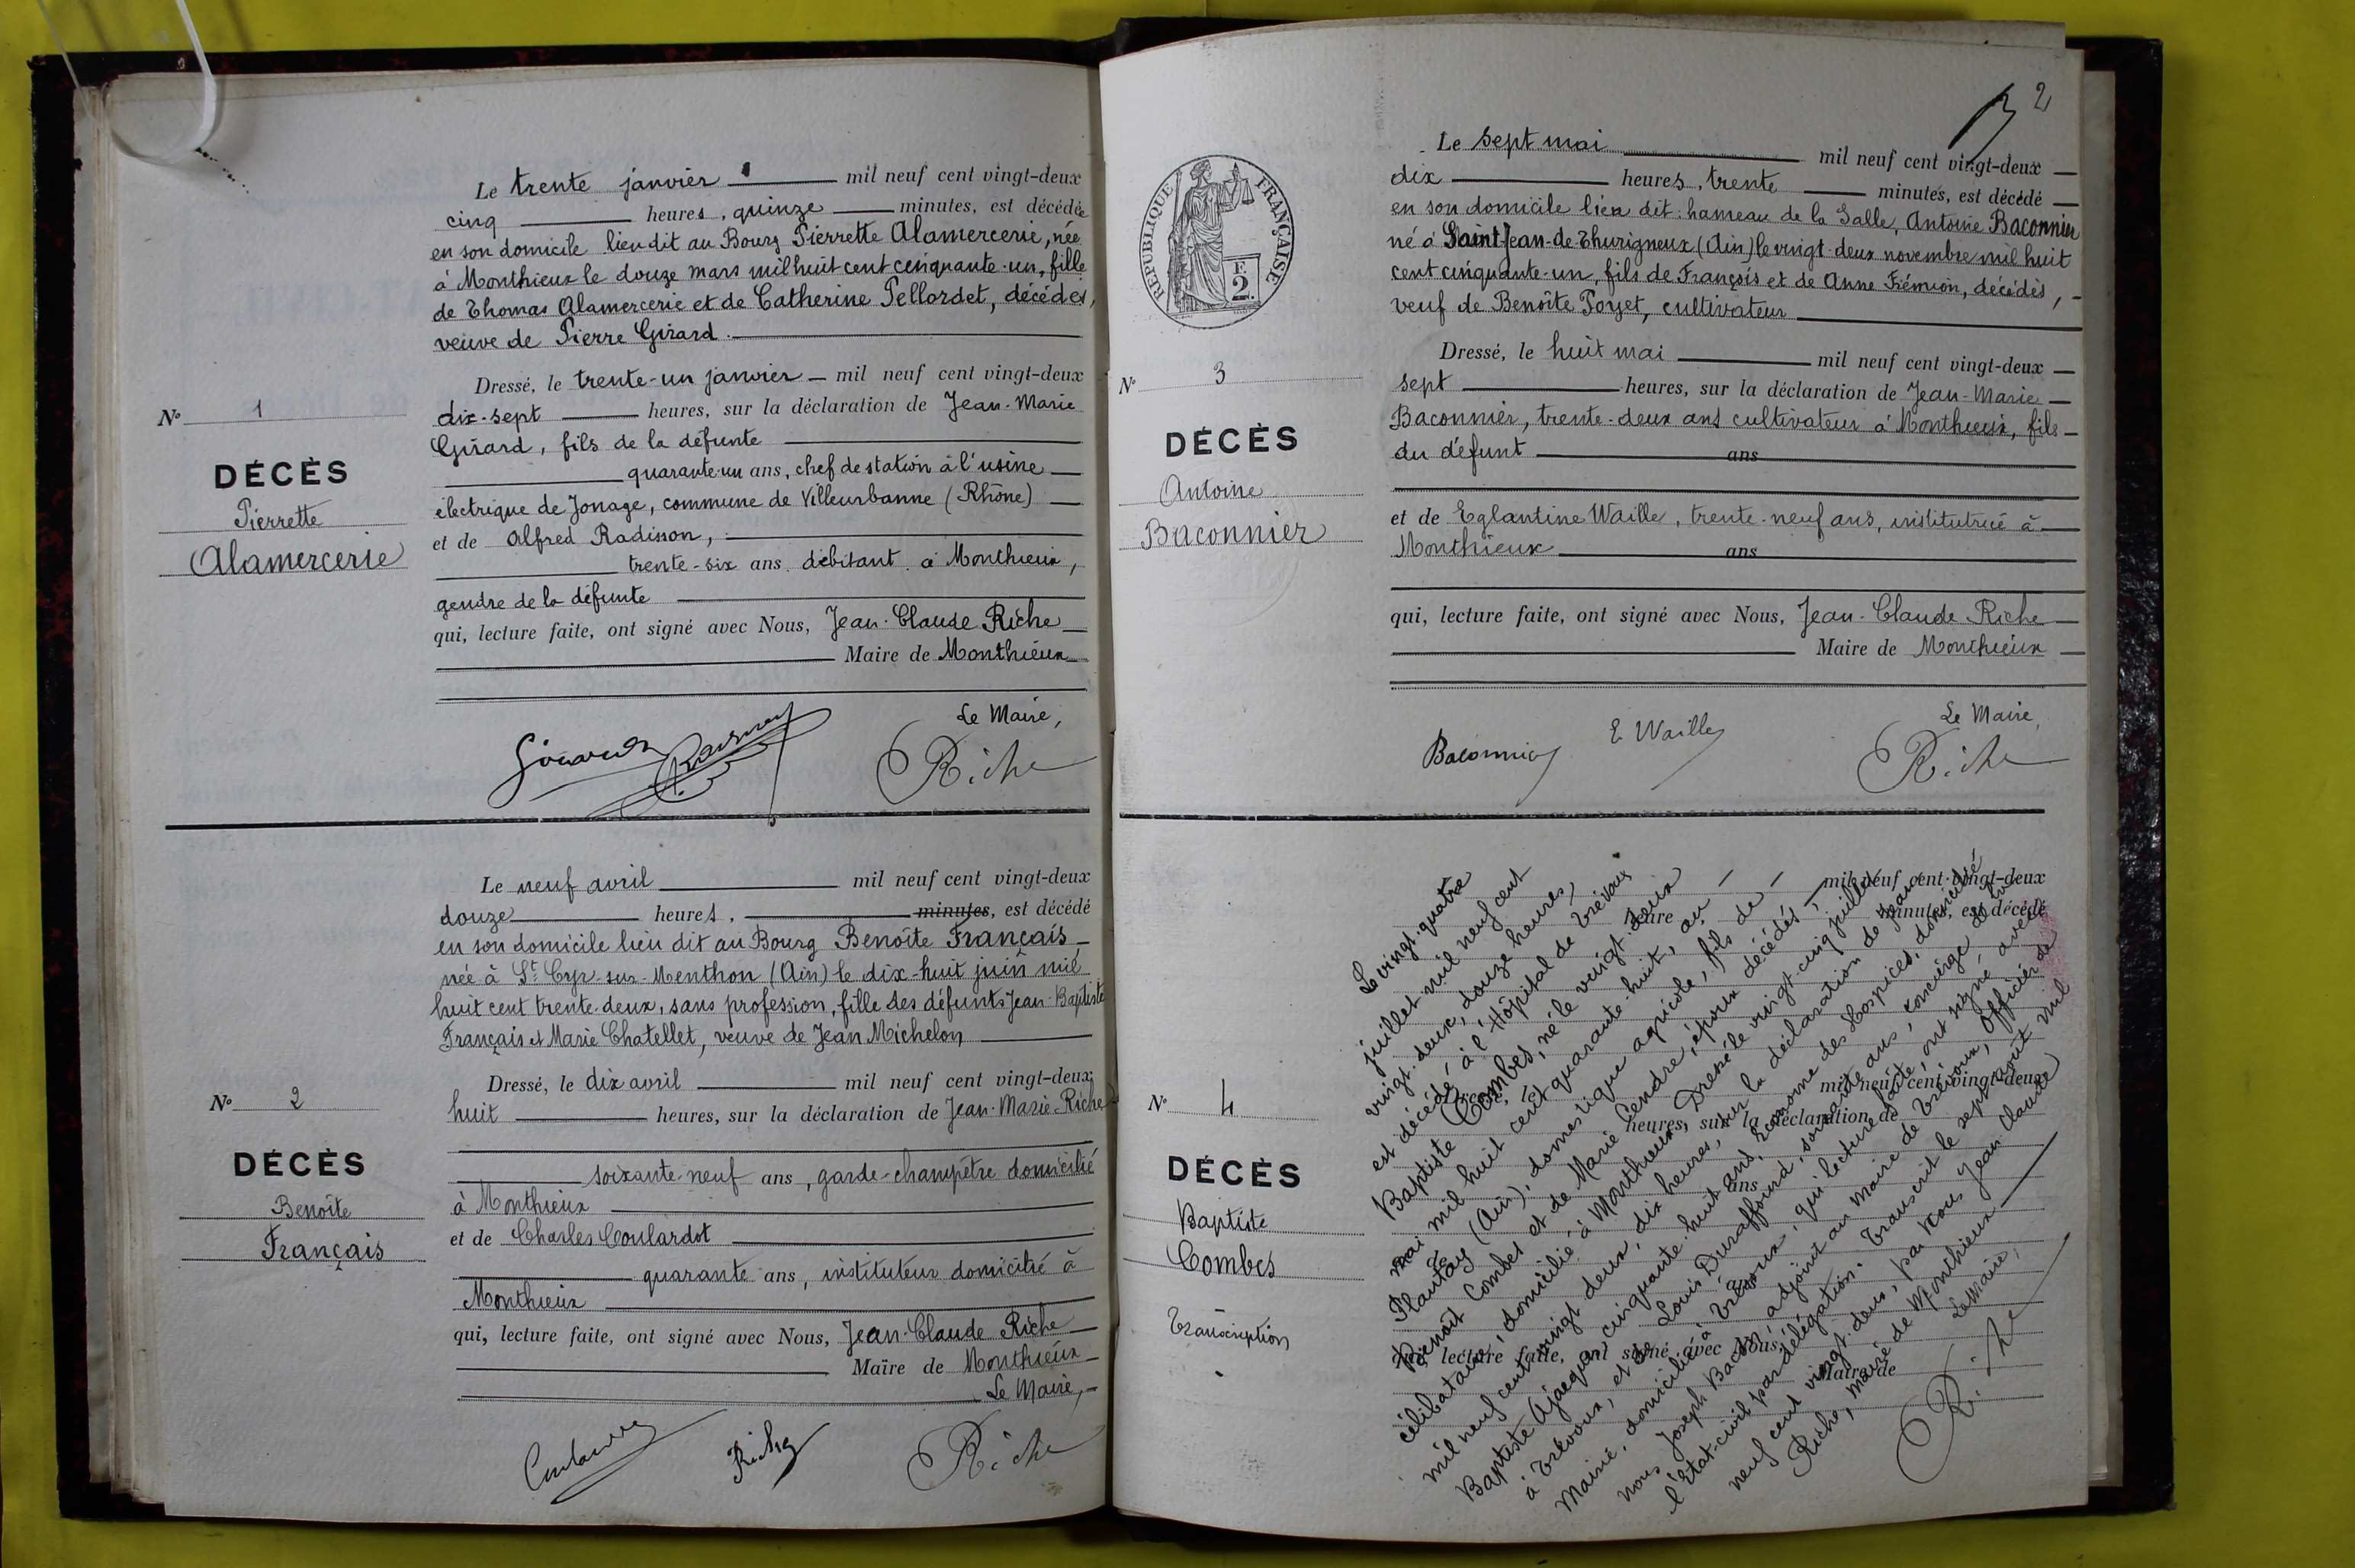 Le trente janvier mil neuf cent vingt-deux
cinq heures, quinze minutes, est décédée
en son domicile lieu dit au Bourg Pierrette Alamercerie, née
à Monthieux le douze mars mil huit cent cinquante-un, fille
de Thomas Alamercerie et de Catherine Pellordet, décédés,
veuve de Pierre Girard.
Dressé, le trente-un janvier mil neuf cent vingt-deux
dix-sept heures, sur la déclaration de Jean-Marie
Girard, fils de la défunte
quarante-un ans, chef de station à l'usine
électrique de Jonage, commune de Villeurbanne (Rhône)
et de Alfred Radisson,
trente-six ans. débitant à Monthieux,
gendre de la défunte
qui, lecture faite, ont signé avec Nous, Jean-Claude Riche
Maire de Monthieux
Le Maire,
Girard
Riche
N° 1
DÉCÈS
Pierrette
Alamercerie
Le neuf avril mil neuf cent vingt-deux
douze heures, minutes, est décédé
en son domicile lieu dit au Bourg Benoîte Français
née à St Cyr-sur-Menthon (Ain) le dix-huit juin mil
huit cent trente-deux, sans profession, fille des défunts Jean-Baptiste
Français et Marie Chatellet, veuve de Jean Michelon
Dressé, le dix avril mil neuf cent vingt-deux
huit heures, sur la déclaration de Jean-Marie Riche
soixante-neuf ans, garde-champêtre domicilié
à Monthieux
et de Charles Coulardot
quarante ans, instituteur domicilié à
Monthieux
qui, lecture faite, ont signé avec Nous, Jean-Claude Riche
Maire de Monthieux
Le Maire,
Riche
Riche
N° 2
DÉCÈS
Benoîte
Français
2
RÉPUBLIQUE FRANÇAISE
F.
2.
Le sept mai mil neuf cent vingt-deux
dix heures, trente minutes, est décédé
en son domicile lieu dit: hameau de la Salle, Antoine Baconnier
né à Saint-Jean-de-Thurigneux (Ain) le vingt-deux novembre mil huit
cent cinquante-un, fils de François et de Anne Frémion, décédés,
veuf de Benoîte Poyet, cultivateur
Dressé, le huit mai mil neuf cent vingt-deux
sept heures, sur la déclaration de Jean-Marie
Baconnier, trente-deux ans cultivateur à Monthieux, fils
du défunt ans
et de Eglantine Waille, trente-neuf ans, institutrice à
Monthieux ans
qui, lecture faite, ont signé avec Nous, Jean-Claude Riche
Maire de Monthieux
Le Maire,
Baconnier
E Waille
Riche
N° 3
DÉCÈS
Antoine
Baconnier
N° 4
DÉCÈS
Baptiste
Combes
Transcription
Le vingt-quatre
juillet mil neuf cent
vingt-deux, douze heures,
est décédé à l'Hôpital de Trévoux
Baptiste Combes, né le vingt-deux
mai mil huit cent quarante-huit, au
Plantay (Ain), domestique agricole, fils de
Benoît Combes et de Marie Gendre, époux décédés,
célibataire, domicilié à Monthieux. Dressé le vingt-cinq juillet
mil neuf cent vingt-deux, dix heures, sur la déclaration de Jean
Baptiste cinquante-huit ans, économe des Hospices, domicilié
à Trévoux, et de Louis Duraffourd, soixante ans, concierge de la
Mairie, domicilié à Trévoux, qui lecture faite, ont signé avec
nous Joseph Bacon, adjoint au maire de Trévoux, Officier de
l'Etat-civil par délégation. Transcrit le sept août mil
neuf cent vingt-deux, par Nous Jean Claude
Riche, Maire de Monthieux
Le Maire,
Riche
mil neuf cent vingt-deux
heure minutes, est décédé
Dressé, le mil neuf cent vingt-deux
heures, sur la déclaration de
ans
ans
qui, lecture faite, ont signé avec Nous,
Maire de